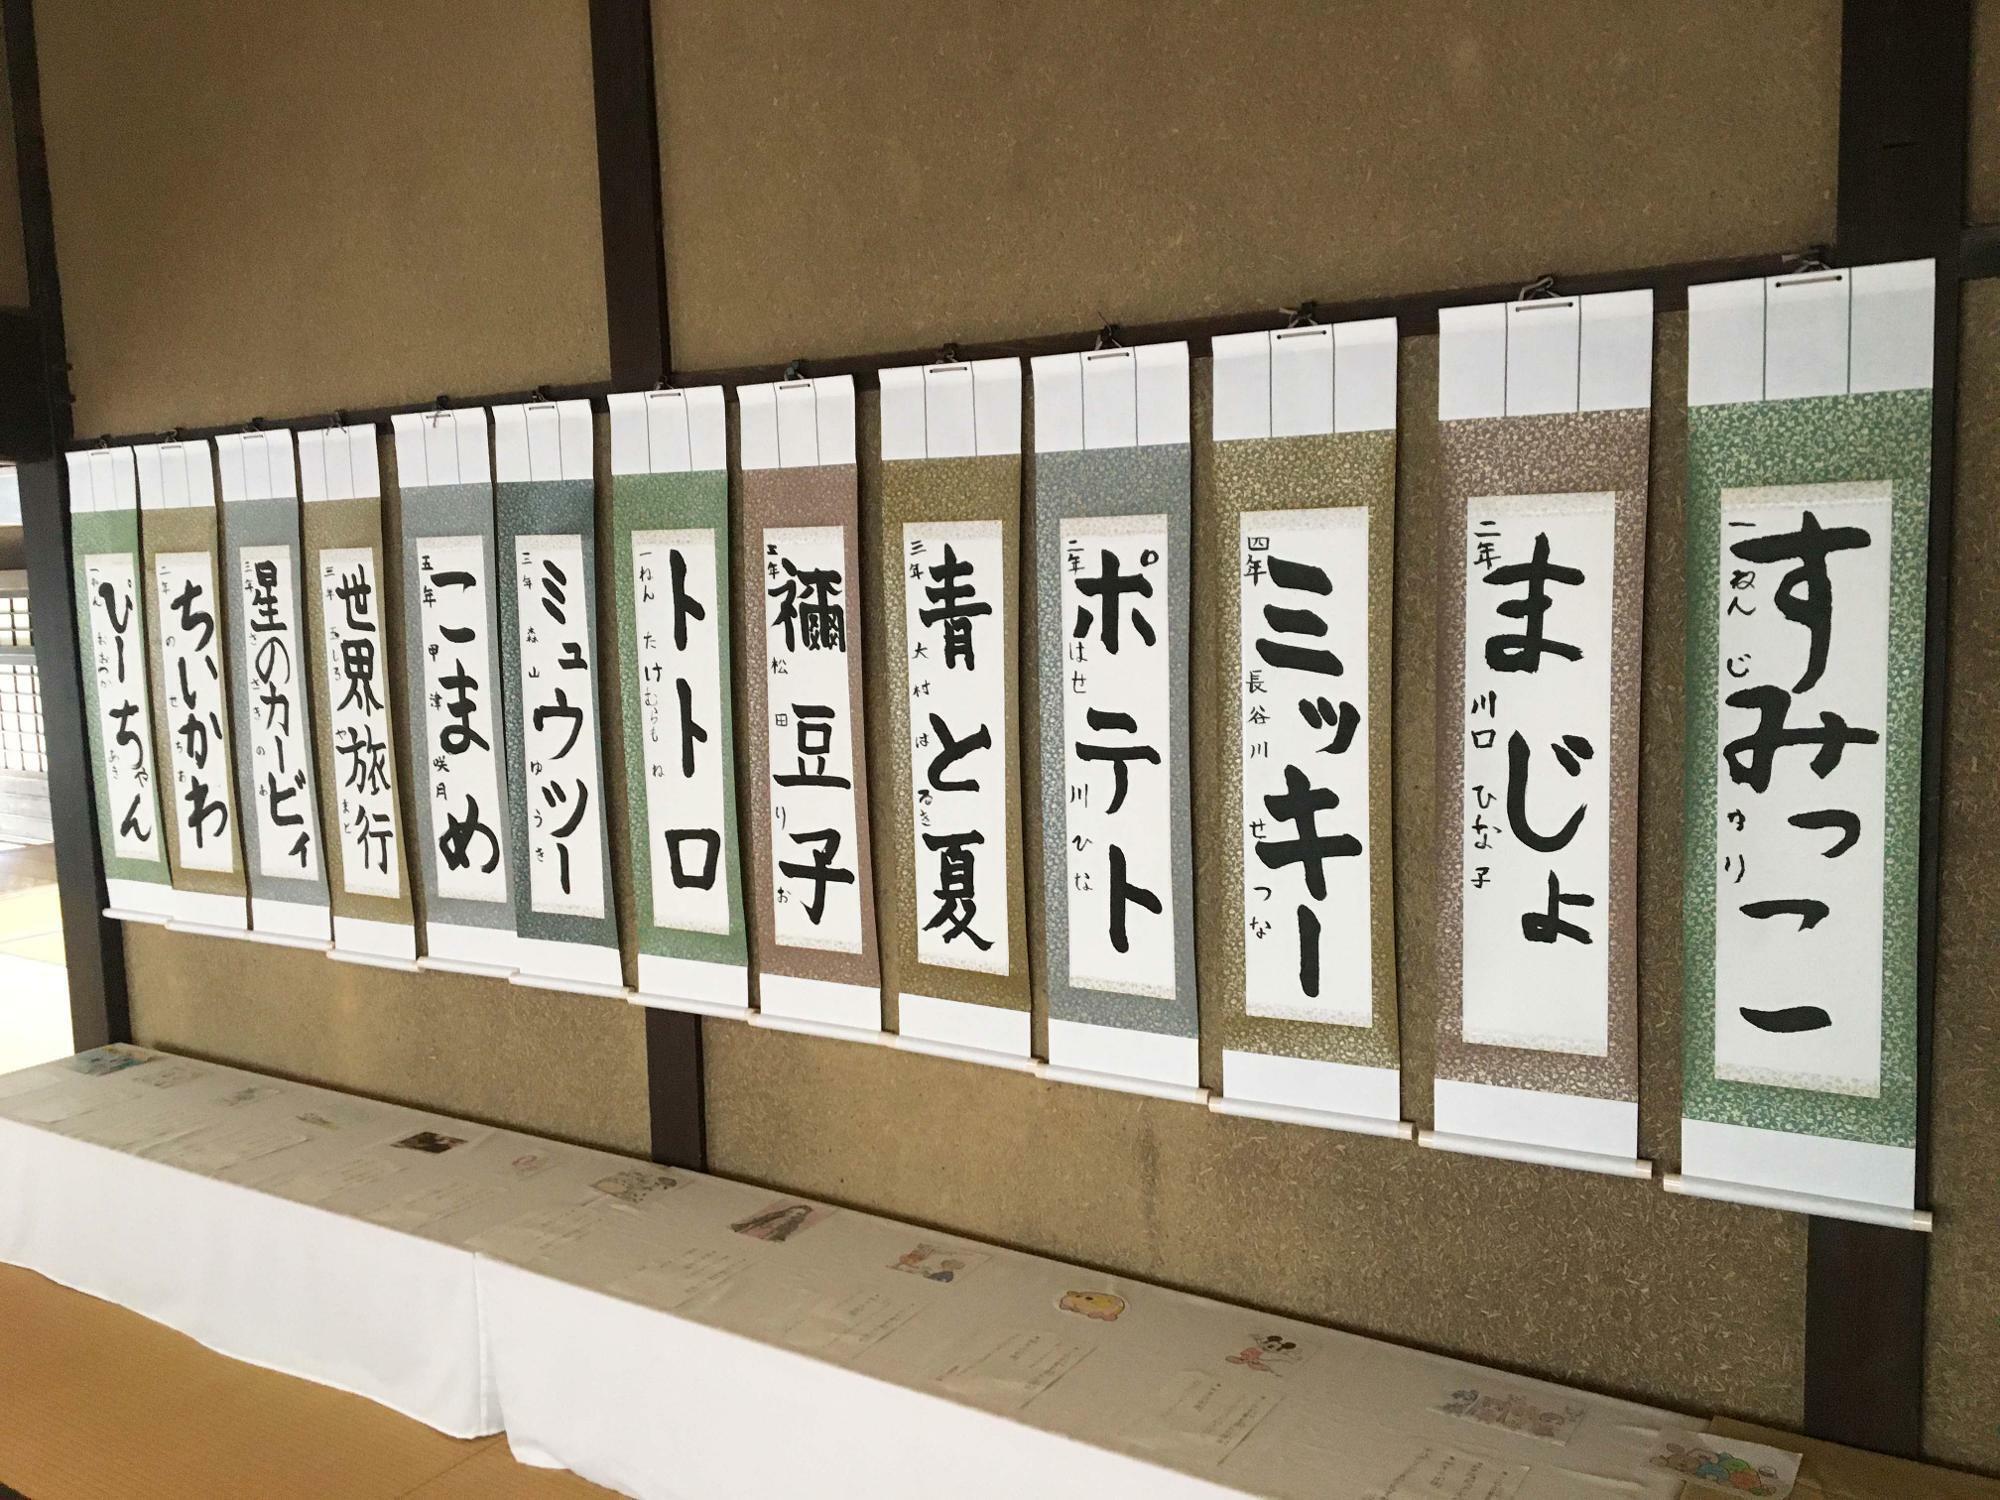 すみっこ
一ねん じゆり
まじょ
二年 川口ひな子
ミッキー
四年 長谷川せつな
ポテト
二年 はせ川ひな
青と夏
三年 大村はるき
禰豆子
松田りお
トトロ
一ねん たけむらもね
ミュウツー
三年 森山ゆうき
こまめ
五年 甲津咲月
世界旅行
三年
星のカービィ
三年 ささきのあ
ちいかわ
二年 のせ
ぴーちゃん
一ねん おおつかあき